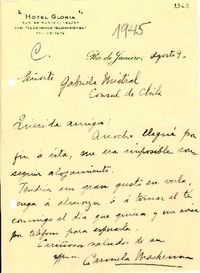 1945
"HOTEL GLORIA"
C.
Rio de Janeiro, agosto 9.
Señorita
Gabriela Mistral
Consul de Chile
Querida amiga:
Anoche llegué por
fin á ésta, me era imposible con
seguir alojamiento.
Tendría un gran gusto en verla,
venga á almorzar ó á tomar el té
conmigo el dia que quiera y me avisa
por teléfono para esperarla.
Cariñosos saludos de su
Carmela Mackenna